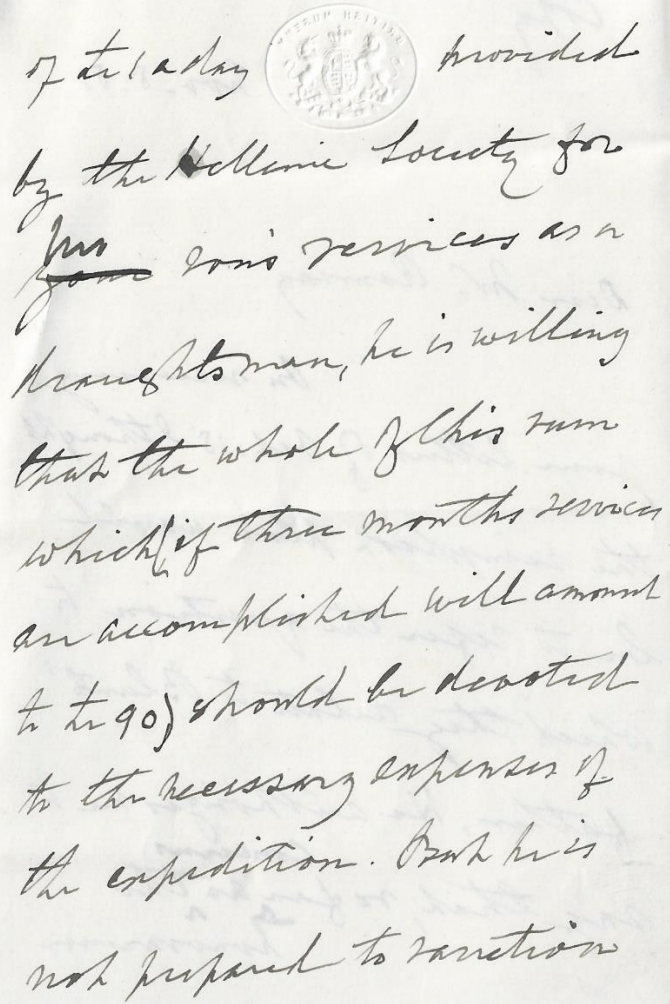 MUSEUM BRITISH
of £1 a day provided
by the Hellenic Society for
his ~~your~~ son's services as a
draughtsman, he is willing
that the whole of this sum
which (if three months services
are accomplished will amount
to £90) should be devoted
to the necessary expenses of
the expedition. But he is
not prepared to sanction